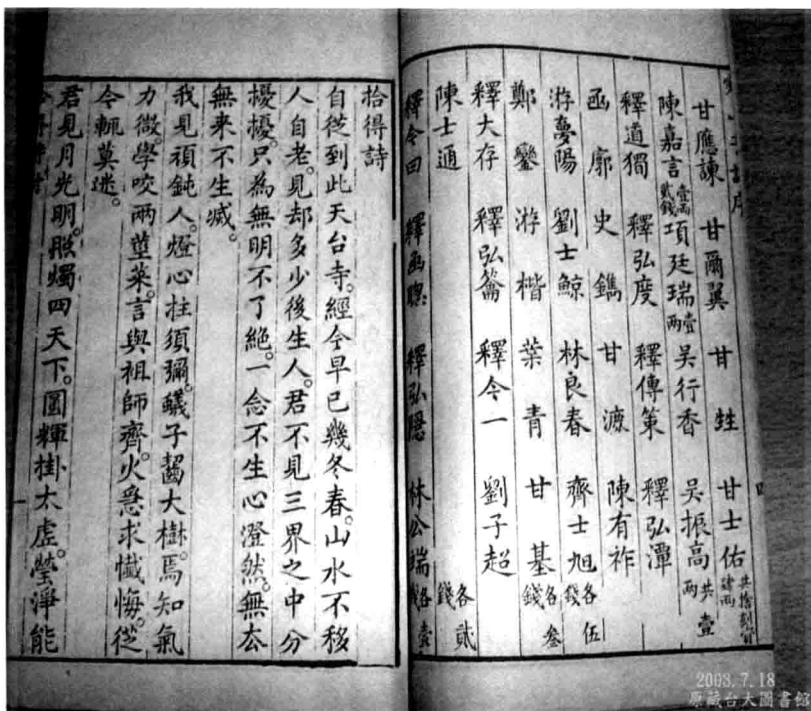 甘應諫 甘爾翼 甘甡 甘士佑
陳嘉言 壹兩貳錢 項廷瑞 壹兩 吳行香 吳振高 共壹兩
釋道獨 釋弘度 釋傳策 釋弘潭
函廓 史鐫 甘㵀 陳有祚
游夢陽 劉士鯨 林良春 齊士旭 各伍錢
鄭鑾 游楷 葉青 甘基 各叁錢
釋大存 釋弘籥 釋今一 劉子超
陳士通 各貳錢
釋今回 釋弘隱 林公瑞 各壹錢
拾得詩
自從到此天台寺。經今早已幾冬春。山水不移
人自老。見却多少後生人。君不見三界之中分
擾擾。只為無明不了絕。一念不生心澄然。無去
無来不生滅。
我見頑鈍人。燈心拄須彌。蟻子齧大樹。焉知氣
力微。學咬兩莖菜。言與祖師齊。火急求懺悔。從
今輒莫迷。
君見月光明。照燭四天下。圓輝掛太虛。瑩淨能
2008.7.18
原藏台大圖書館